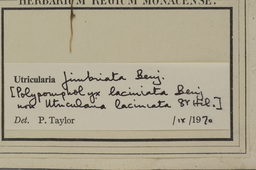 HERBARIUM REGIUM MONACENSE.
Utricularia fimbriata Benj.
[Polypompholyx laciniata Benj.
non Utricularia laciniata St Hil.]
Det. P. Taylor /ix/1970